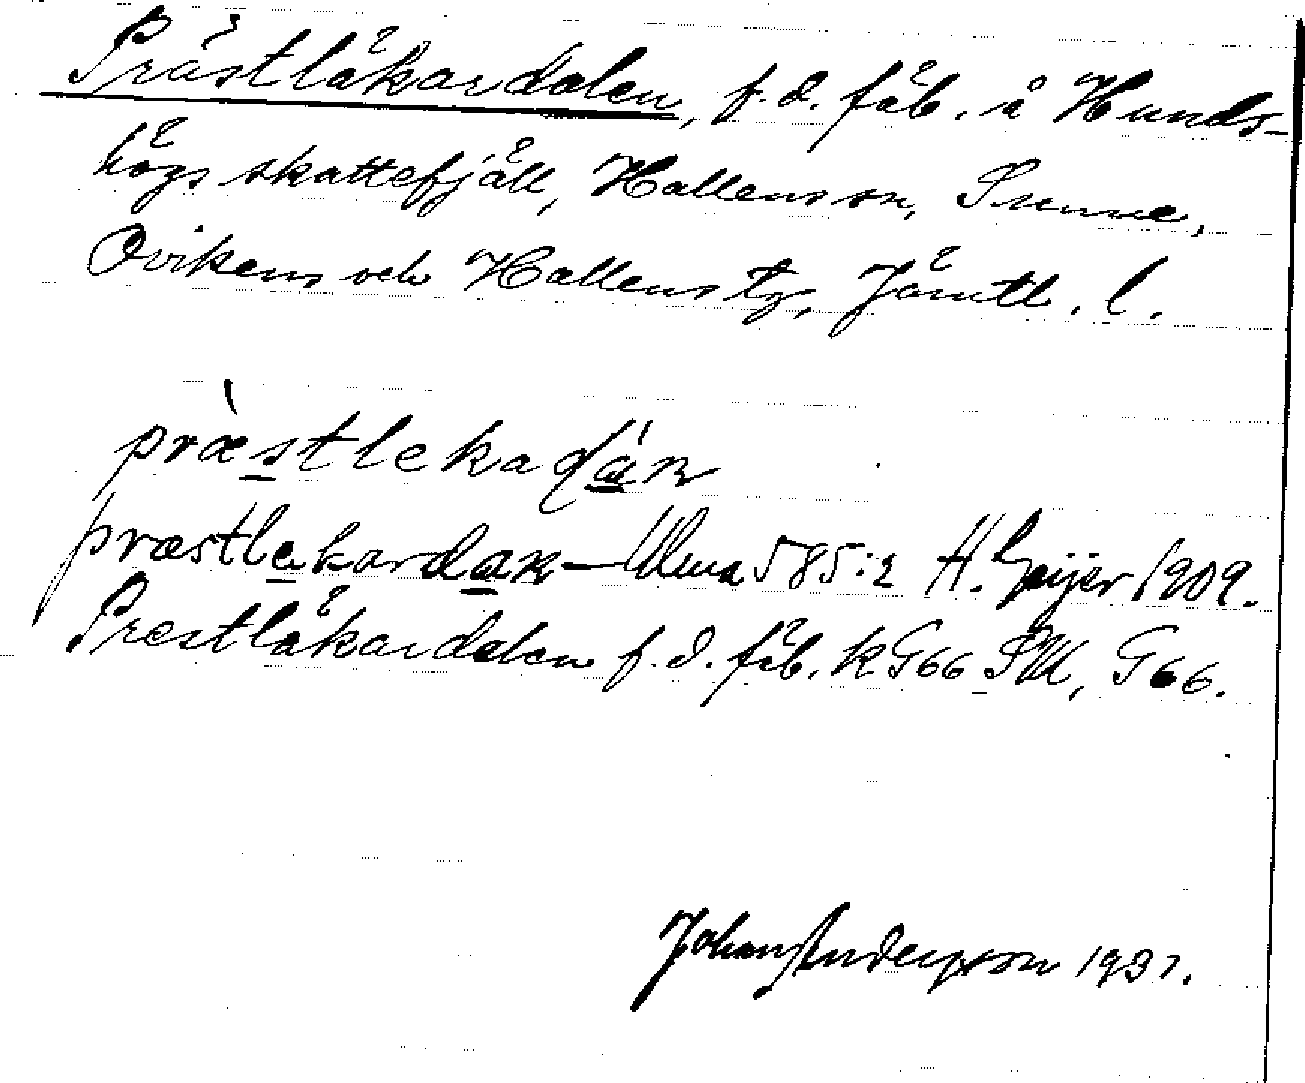 Prästläkardalen, f.d. fäb. å Hunds-
högs skattefjäll, Hallens sn, Sunne,
Ovikens och Hallens tg, Jämtl. l.
præstlekadàn
præstlekardan – Ulma 585:2 H. Geijer 1909.
Prestläkardalen f.d. fäb. k. G66 SK, G66.
Johans Andersson 1937.